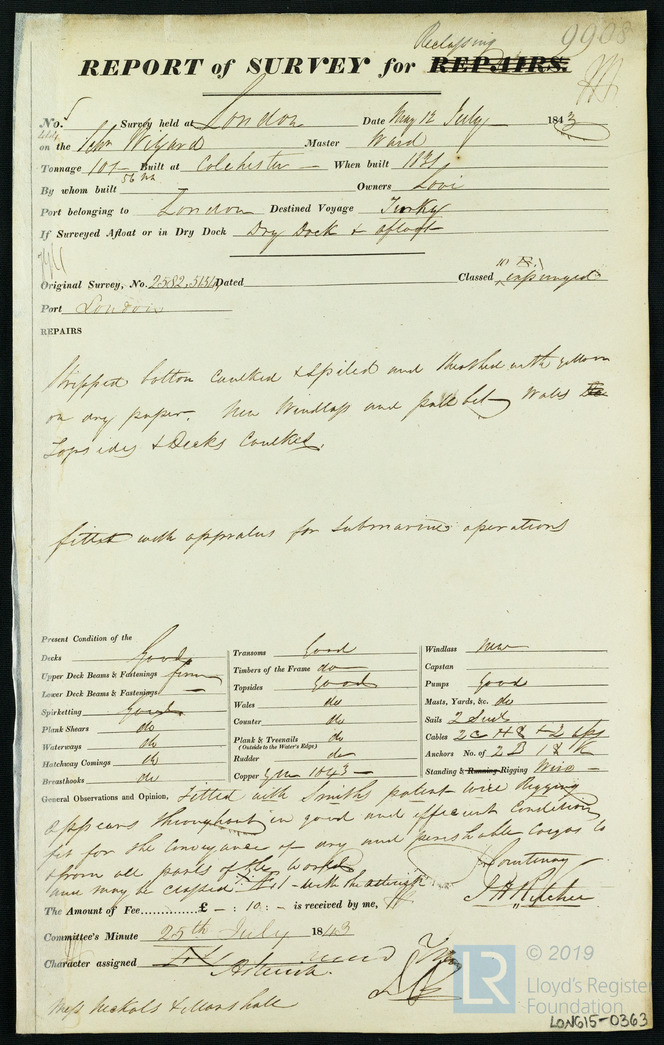 Reclassing 9908
REPORT of SURVEY for REPAIRS.
No. 5 Survey held at London Date May 12 July 1843
on the Schr Wizard Master Ward
Tonnage 107 Built at Colchester When built 1831
56 NM
By whom built Owners
Port belonging to London Destined Voyage Turky
If Surveyed Afloat or in Dry Dock Dry Dock & afloat
Original Survey, No. 2582. Dated Classed expunged
Port London
REPAIRS
Stripped bottom Caulked & Spiled and sheathed with y Metal
on dry paper. New Windlass and pall bit, Wales
Topsides & Decks Caulked.
fitted with appratus for submarine operations
Present Condition of the
Decks Good
Upper Deck Beams & Fastenings firm
Lower Deck Beams & Fastenings —
Spirketting Good
Plank Shears do
Waterways do
Hatchway Comings do
Breasthooks do
Transoms Good
Timbers of the Frame do
Topsides Good
Wales do
Counter do
Plank & Treenails do
(Outside to the Water's Edge)
Rudder do
Copper y Metal 1843 —
Windlass New
Capstan
Pumps Good
Masts, Yards, &c. do
Sails 2 Suits
Cables 2 C
Anchors No. of 2 B 1 S & K
Standing & Running Rigging Wire —
General Observations and Opinion, Fitted with Smiths patent wire Rigging
appears throughout in good and efficient Condition
fit for the Conveyance of dry and perishable Cargos to
& from all parts of the World
and may be classed with the asterisk
Courtenay
The Amount of Fee.............£ – : 10 : – is received by me,
Committee's Minute 25th July 1843
Character assigned
Asterisk
Mess Nickols & Marshall
© 2019
LR
Lloyd's Register
Foundation
LON615-0363